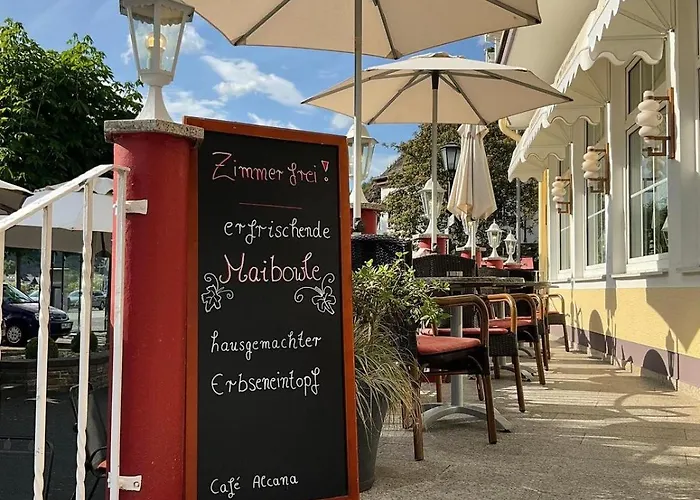 Zimmer frei!
erfrischende
Maibowle
hausgemachter
Erbseneintopf
Café Alcana